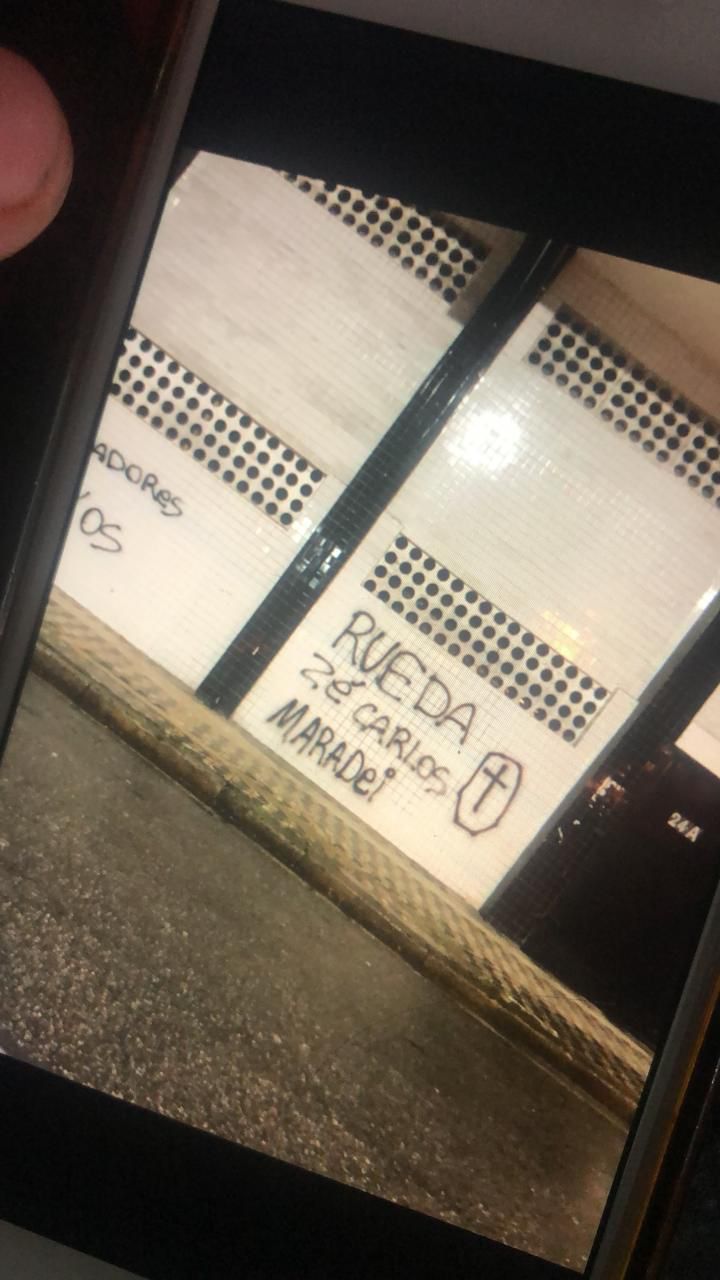 ADORES
OS
RUEDA
Zé CARLOS
MARADei
24A